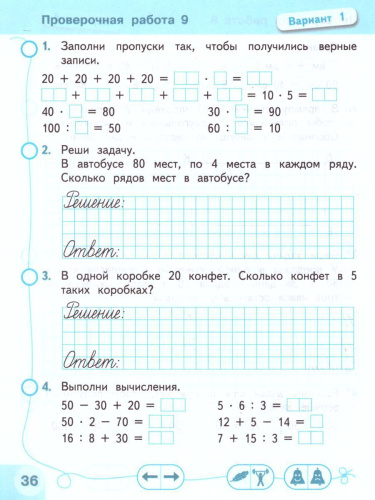 Проверочная работа 9
Вариант 1
1. Заполни пропуски так, чтобы получились верные
записи.
20 + 20 + 20 + 20 = □□ · □ = □□
□□ + □□ + □□ + □□ + □□ = 10 · 5 = □□
40 · □ = 80 30 · □ = 90
100 : □ = 50 60 : □ = 10
2. Реши задачу.
В автобусе 80 мест, по 4 места в каждом ряду.
Сколько рядов мест в автобусе?
Решение:
Ответ:
3. В одной коробке 20 конфет. Сколько конфет в 5
таких коробках?
Решение:
Ответ:
4. Выполни вычисления.
50 − 30 + 20 = □□ 5 · 6 : 3 = □□
50 · 2 − 70 = □□ 12 + 5 − 14 = □
16 : 8 + 30 = □□ 7 + 15 : 3 = □□
36